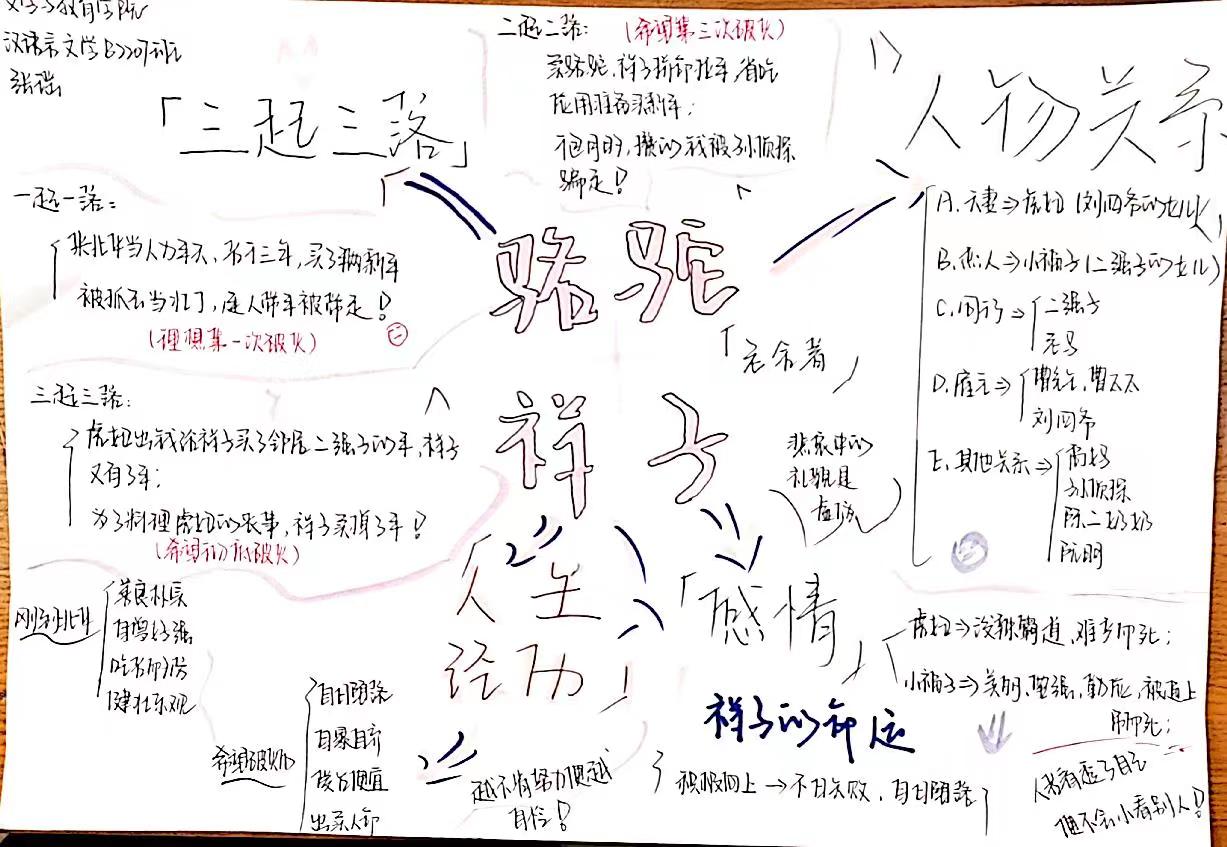 汉语言文学B2207班
「三起三落」
一起一落:
来北平当人力车夫,不下三年,买了辆新车
被抓去当壮丁,连人带车被带走!
(理想第一次破灭)
二起二落:
(希望第二次破灭)
卖骆驼,祥子拼命拉车,省吃
俭用准备买新车;
包月时,攒的钱被孙侦探
骗走!
三起三落:
虎妞出钱给祥子买了邻居二强子的车,祥子
又有了车;
为了料理虎妞的丧事,祥子卖掉了车!
骆驼
祥子
「老舍著」
人物关系
A.夫妻⇒虎妞(刘四爷的女儿)
B.恋人⇒小福子(二强子的女儿)
C.同行⇒
二强子
老马
D.雇主⇒
曹先生,曹太太
刘四爷
E.其他关系⇒
高妈
孙侦探
陈二奶奶
阮明
「人生
经历」
刚到北平
善良朴实
自尊好强
吃苦耐劳
健壮乐观
希望破灭后
自甘堕落
自暴自弃
出卖人命
越不肯努力便越
自怜!
「感情」
虎妞⇒泼辣霸道,难产而死;
小福子⇒美丽,坚强,勤俭,被逼上
吊死;
祥子的命运
积极向上→不甘失败,自甘堕落
人若看歪了自己
便不会小看别人!